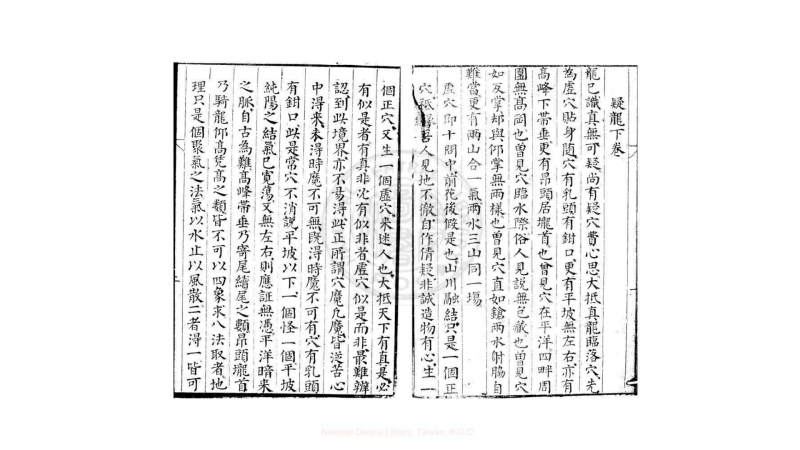 疑龍下卷
龍已識真無可疑尚有疑穴費心思大抵真龍臨落穴先
為虛穴貼身隨穴有乳頭有鉗口更有平坡無左右亦有
高峰下帶垂更有昂頭居壠首也曾見穴在平洋四畔周
圍無高岡也曾見穴臨水際俗人見說無包藏也曽見穴
如反掌却與仰掌無兩樣也曽見穴直如鎗兩水射脇自
難當更有兩山合一氣兩水三山同一場
虛穴即十關中前花後假是也山川融結只是一個正
穴秪緣吾人見地不徹自作倩疑非誠造物有心生一
個正穴又生一個虛穴来迷人也大抵天下有真是必
有似是者有真非沈有似非者虛穴似是而非最難辨
認到此境界亦不易得此正所謂穴魔凡魔皆従苦心
中淂来未淂時魔不可無既淂時魔不可有穴有乳頭
有鉗口此是常穴不消說平坡以下一個怪一個平坡
純陽之結氣已寛蕩又無左右則應証無憑平洋暗来
之脈自古為難高峰帶垂乃寄尾繣尾之類昂頭壠首
乃騎龍仰高凭高之類皆不可以四象求八法取者地
理只是個聚氣之法氣以水止以風散二者得一皆可
National Central Library, Taiwan, R.O.C